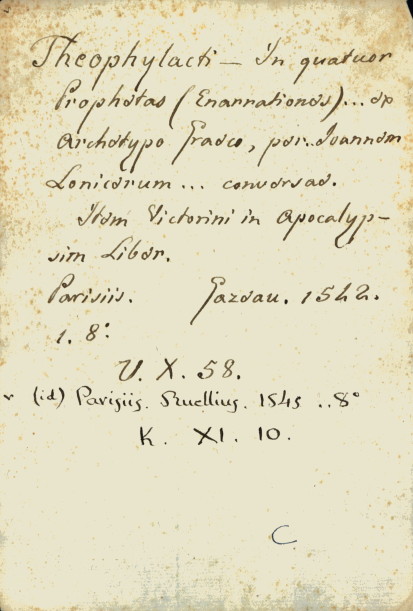 Theophylacti — In quatuor
Prophetas (Enarrationes)... ex
Archetypo Graeco, per.. Joannem
Lonicerum ... conversae.
Item Victorini in Apocalyp-
sim Liber.
Parisiis. Gazeau. 1542.
1. 8°.
U. X. 58.
(id) Parisiis. Ruellius. 1545 .. 8°
K. XI. 10.
C